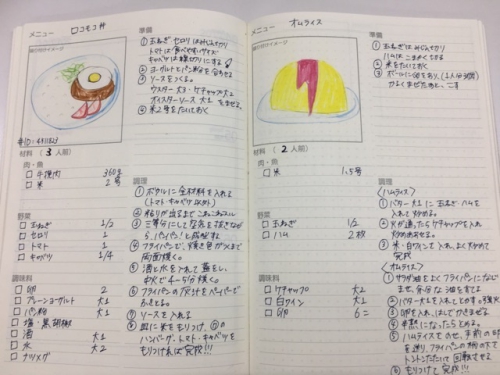 メニュー ロコモコ丼
盛り付けイメージ
材料 (3 人前)
肉・魚
□ 牛挽肉 360g
□ 米 2号
野菜
□ 玉ねぎ 1/2
□ セロリ 1
□ トマト 1
□ キャベツ 1/4
調味料
□ 卵 2
□ プレーンヨーグルト 大1
□ パン粉 大1
□ 塩・黒胡椒
□ 酒 大1
□ 水 大2
□ ナツメグ
準備
① 玉ねぎ セロリはみじん切り
トマトは食べやすいサイズ
キャベツは線切りにする
② ヨーグルトとパン粉を合わせる
③ ソースをつくる。
ウスター大3・ケチャップ大1
オイスターソース 大1 をまぜる。
④ 米2号をたいておく
調理
① ボウルに全材料を入れる
(トマト・キャベツ以外)
② 粘りが出るまでこねこね
③ 三等分にして空気を抜きながら
④ フライパンで、焼き色がつくまで
両面焼く。
⑤ 酒と水を入れて蓋をし、
中火で4〜5分焼く。
⑥ フライパンの をペーパーで
ふきとる。
⑦ ソースを入れる
⑧ 皿に米をもりつけ、
ハンバーグ、トマト、キャベツを
もりつければ完成!!!
メニュー オムライス
盛り付けイメージ
材料 (2 人前)
肉・魚
□ 米 1.5号
野菜
□ 玉ねぎ 1/2
□ ハム 2枚
調味料
□ ケチャップ 大1
□ 白ワイン 大1
□ 卵 6コ
準備
① 玉ねぎはみじん切り
ハムはこまめくちぎる
② 米をたいておく
③ ボールに卵をわり、(1人分3個)
かるくまぜたあと、こす
調理
〈ハムライス〉
① バター大1に玉ねぎ・ハムを
入れて炒める。
② 火が通ったらケチャップを入れ
炒めあわせる。
③ 米・白ワインを入れ、よく炒めて
完成
〈オムライス〉
① サラダ油をよくフライパンになじ
ませ、余分な油をすてる
② バター大1を入れてとかす
③ 卵を入れ、はしでかきまぜる。
④ 半熟になったらとめる。
⑤ ハムライスをのせ、手前の卵
を返り、フライパンの柄の下を
トントンたたいて回転させる
⑥ もりつけて完成!!!